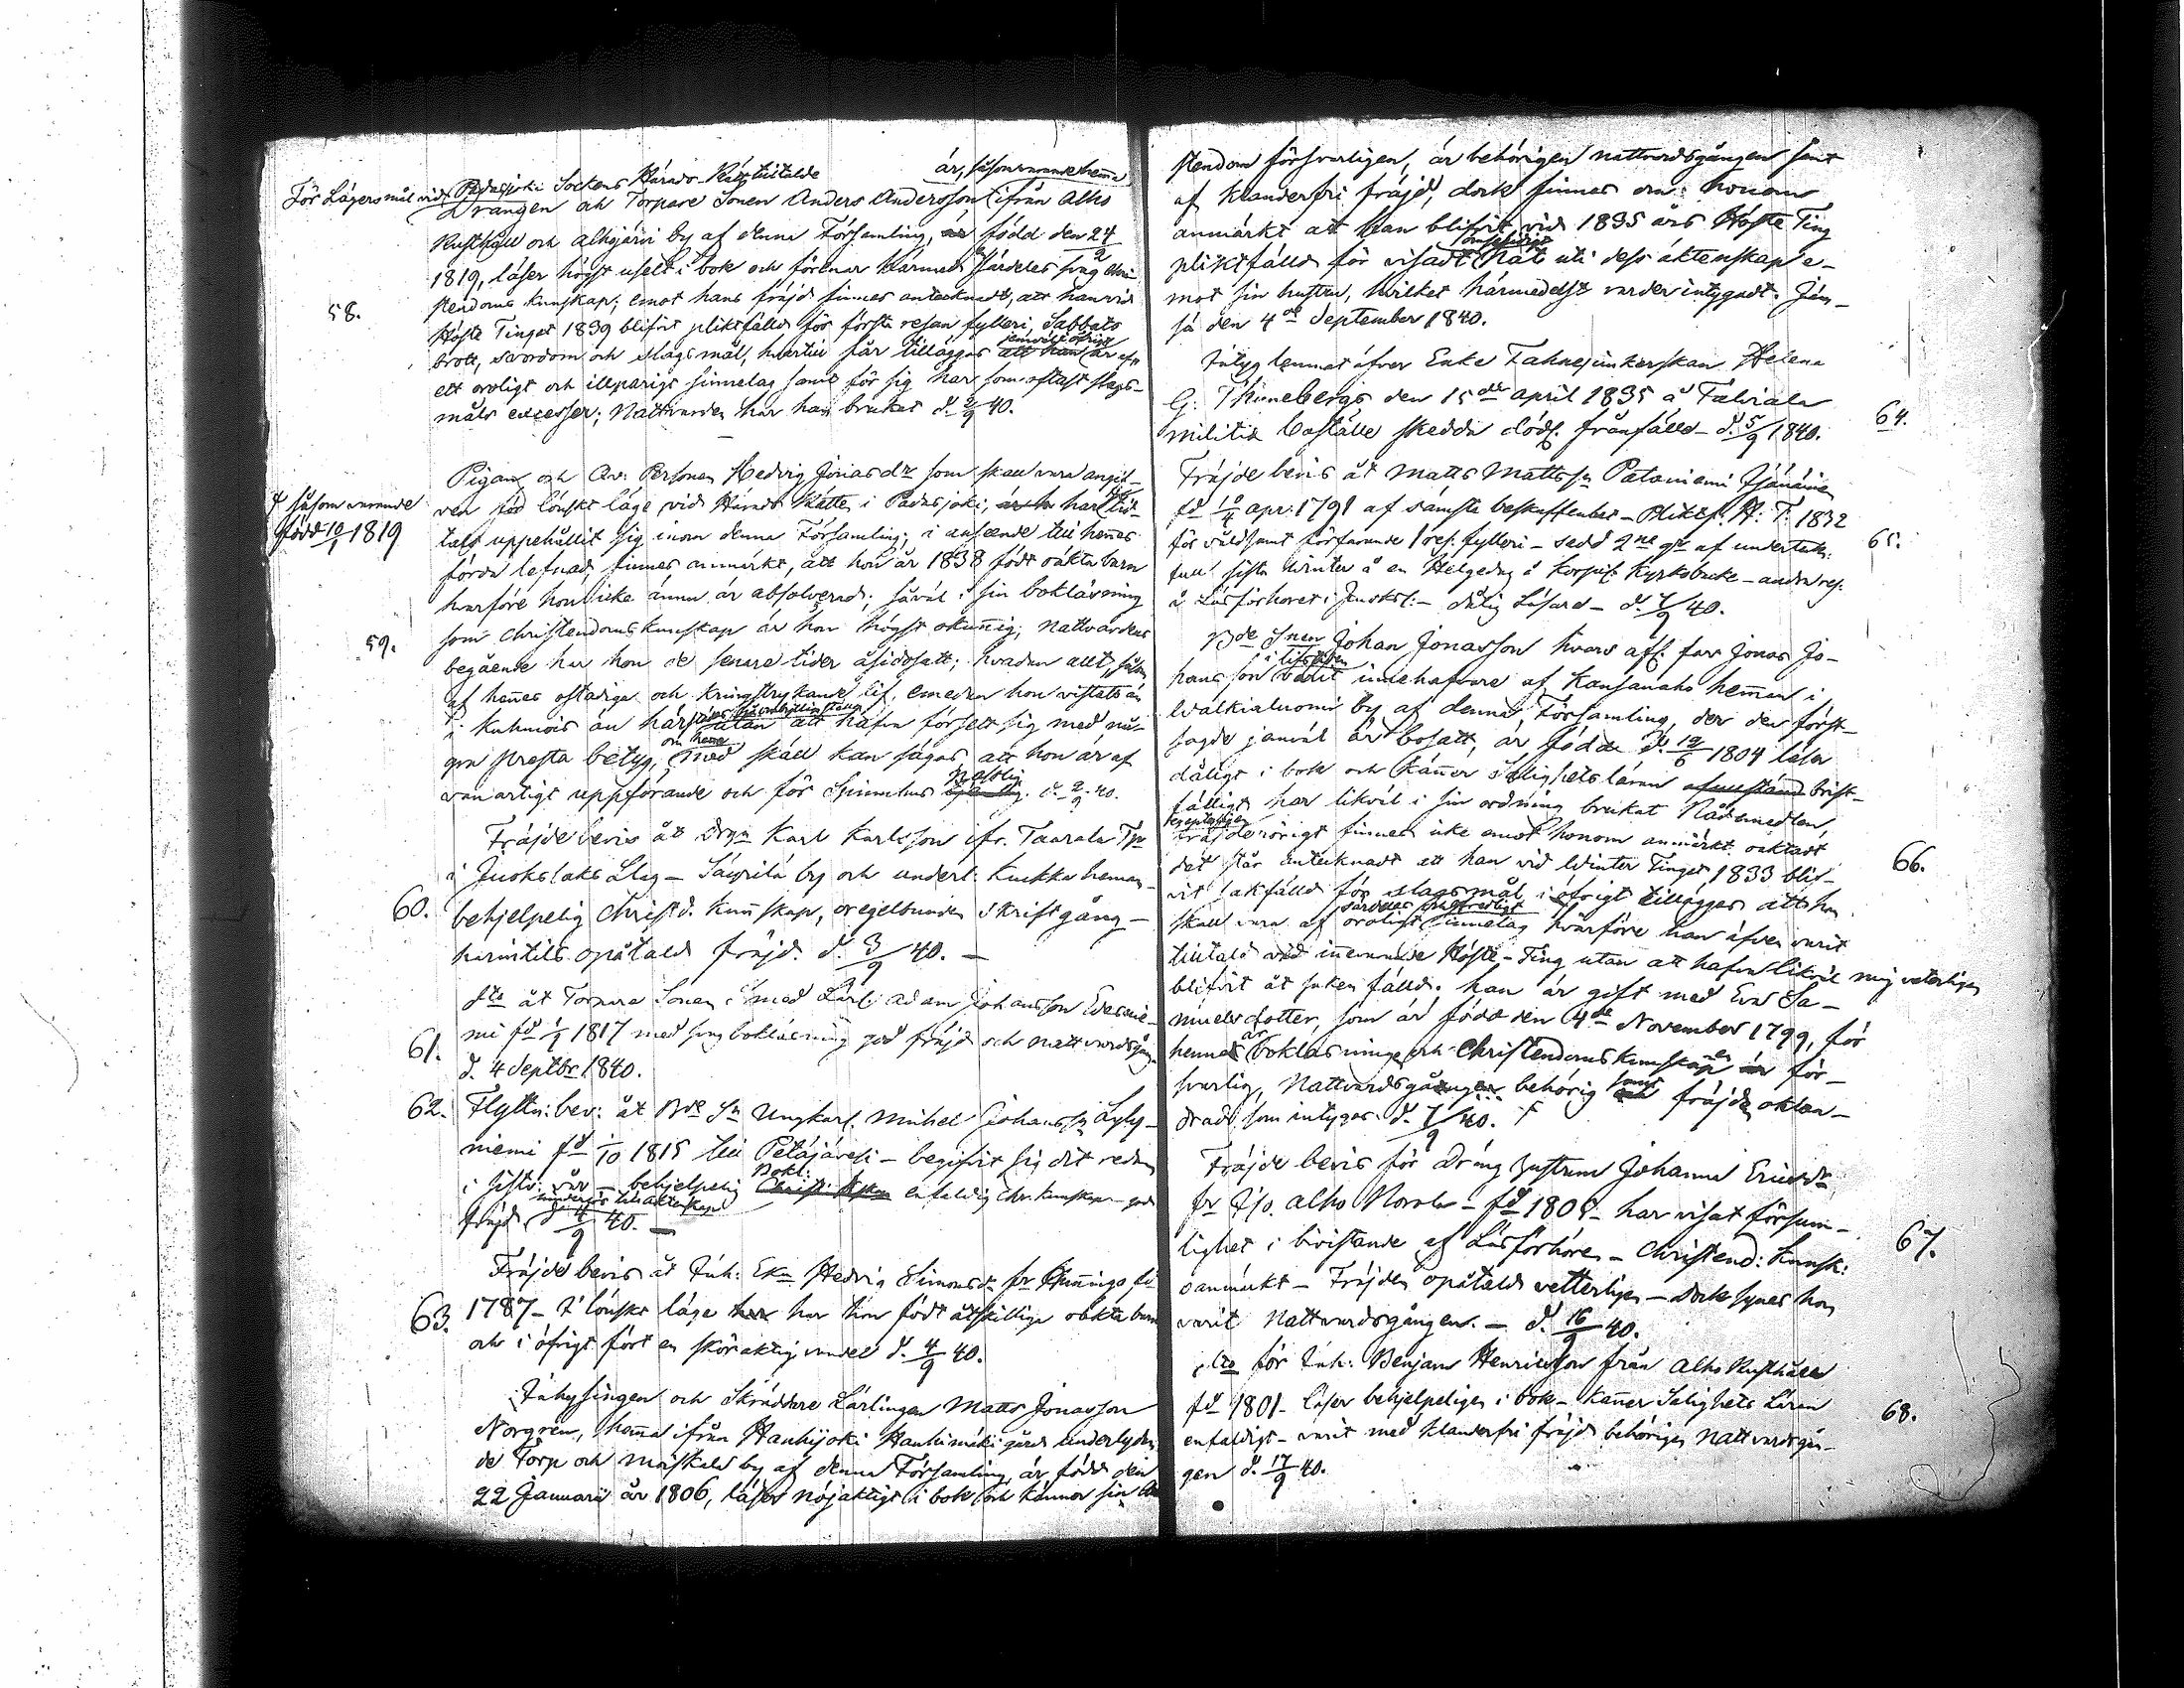 För Lägersmål vid Padasjoki Sockens Härads Rätt tilltalde är, såsom varande hemma
Drängen och Torpare Sonen Anders Andersson ifrån Alho
Rusthåll och Alhojärvi by af denna Församling, är född den 24/2
1819, läser högst uselt i bok och förenar härmed särdeles svag Chri-
stendoms kunskap; emot hans fräjd finnes antecknadt, att han vid
58.
Höste Tinget 1839 blifvit pliktfälld för första resan fylleri, Sabbats
brott, svordom och slagsmål, hvartill får tilläggas att han är af
ett oroligt och illparigt sinnelag samt för sig har som oftast slags-
måls excesser; Nattvarden har han brukat d. 2/9 40.
Pigan och Qv: Personen Hedvig Jonasdr som skall vara angif-
ven för lönskt läge vid Härads Rätten i Padasjoki, har tid-
såsom varande
född 10/1 1819
tals uppehållit sig inom denna Församling; i anseende till hennes
förda lefnad, finnes anmärkt, att hon år 1838 födt oäkta barn
hvarföre hon icke ännu är absolverad; såväl i sin bokläsning
59.
som Christendomskunskap är hon högst okunnig; Nattvardens
begående har hon de senare tider åsidosatt; hvadan allt,
af hennes ostadiga och kringstrykande lif, emedan hon vistats än
i Kuhmois än här utan att hafva försett sig med nå-
gra Presta betyg, om henne med skäll kan sägas att hon är af
vanartigt uppförande och för Spinnhus d. 2/9 40.
Fräjdebevis åt Drn Karl Karlsson ifr. Taarala Trp
i Juokslaks Låg – Säyrilä by och underl: Kukka heman
60.
behjelpelig Christd. Kunskap, oregelbunden Skriftgång –
hirintils opåtald fräjd. d. 3/9 40. –
Dto åt Torpare Sonen Smed Lärl: Adam Johansson
mi fd 1/9 1817 med svag bokläsning god fräjd och nattvardsgång
61.
d. 4 Septbr 1840.
62.
Flyttn: bev: åt Bde Sn Ungkarl Mihel Johanss: Lyly-
niemi fd 1/10 1815 till Petäjävesi – begifvit sig dit redan
i sistl: vår – behjelpelig Bokl: enfaldig Chr. kunskap – god
fräjd, d. 4/9 40. –
Fräjdebevis åt Inh: Ekn Hedvig Simonsdr fr fd
63.
1787 – I lönskt läge har hon födt åtskilliga oäkta barn
och i öfrigt fört en sköraktig vandel d. 4/9 40.
Inhysingen och Skräddare Lärlingen Matts Jonasson
Norgren, hemma ifrån Hauhijoki Hauhimäki gård underlydan-
de Torp och by af denna Församling, är född den
22 Januarii år 1806, läser nöjaktigt i bok och känner sin
stendom försvarligen, är behörigen nattvardsgången samt
af klanderfri fräjd, dock finnes om honom
anmärkt att han blifvit vid 1835 års Höste Ting
pliktfälld för visadt hat uti dess äktenskap e-
mot sin hustru, hvilket härmedelst varder intygadt. Jäm-
sä den 4de September 1840.
Intyg lemnat öfver Enke Fahnejunkerskan Helena
G: Thunebergs den 15de April 1835 å Talviala
64.
militie boställe skedda dödl: frånfälle – d. 5/9 1840.
Fräjdebevis åt Matts Mattss: Pataniemi
fd 10/4 apr: 1791 af sämsta beskaffenhet – Pliktf: H: T. 1832
65.
för våldsamt förfarande / res: fylleri – sedd 2ne gr af undertek:
full sista vinter å en Helgedag å Korpil: Kyrkobacke – andra res.
å Läsförhöret i Juoksl: – dålig Läsare – d. 7/9 40.
Bde Snen Johan Jonasson hvars afl. far Jonas Jo-
hansson i lifstiden varit innehafvare af Kansanaho heman i
Walkialuomi by af denna Församling, der den först-
sagde jemväl är bosatt, är född d. 12/6 1804 läser
dåligt i bok och känner Salighetsläran brist-
fälligt har likväl i sin ordning brukat Nådemedlen,
Fräjden rörigt finnes icke emot honom anmärkt oaktadt
66.
det står antecknadt att han vid Winter Tinget 1833 blif-
vit sakfälld för slagsmål, i öfrigt tillägges att han
skall vara af oroligt sinnelag hvarföre han äfven varit
tilltald vid innevarande Höste-Ting utan att hafva likväl mig veterligen
blifvit åt saken fälld. han är gift med Eva Sa-
muelsdotter, som är född den 4de November 1799, för
hennes är bokläsning och Christendomskunskapen för-
svarlig, Nattvardsgången behörig samt fräjden oklan-
drad som intygas. d. 7/9 40.
Fräjdebevis för Dräng hustrun Johanna Ericsdr
fr Alho Norola – fd 1805 – har visat försum-
67.
lighet i bivistande af Läsförhören – Christend: Kunsk:
oanmärkt – Fräjden opåtald vetterligen – dock synes hon
varit Nattvardsgången. – d. 16/9 40.
Dto för Inh: Benjam Henricsson från Alho Rusthåll
68.
fd 1801 – läser behjelpeligen i bok – känner Salighets Läran
enfaldigt – varit med klanderfri fräjd behörigen Nattvardsgån-
gen d. 17/9 40.